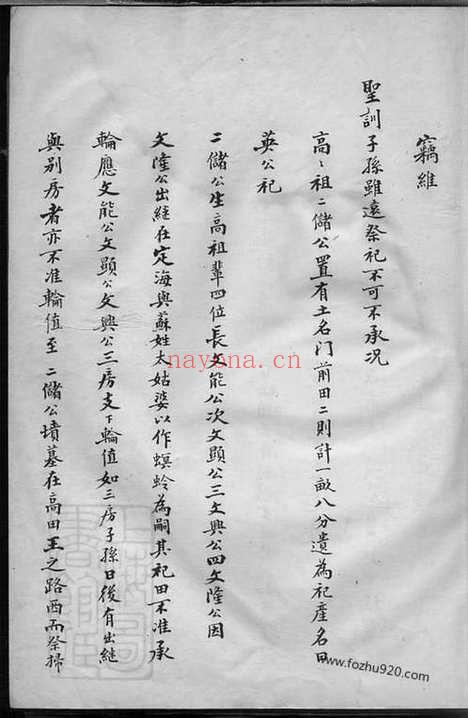 竊維
聖訓子孫雖遠祭祀不可不承况
高〻祖二儲公置有土名门前田二則計一畝八分遺為祀產名曰
英公祀
二儲公生高祖輩四位長文能公次文顯公三文興公四文隆公因
文隆公出継在定海與蘇姓太姑婆以作螟蛉為嗣其祀田不准承
輪應文能公文顯公文興公三房支下輪值如三房子孫日後有出継
與别房者亦不准輪值至二儲公墳墓在高田王之路西而祭掃
nayona.cn
www.fozhu920.com